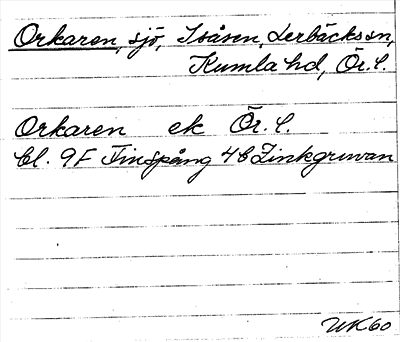 Orkaren, sjö, Isåsen, Lerbäcks sn,
Kumla hd, Ör. l.
Orkaren ek Ör. l.
bl. 9F Finspång 4b Zinkgruvan
UK60